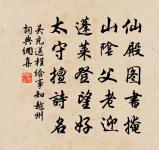 仙殿图書掩
山陰父老迎
蓬莱登望好
太守擅詩名
吴充送程给事知越州
詞典網集